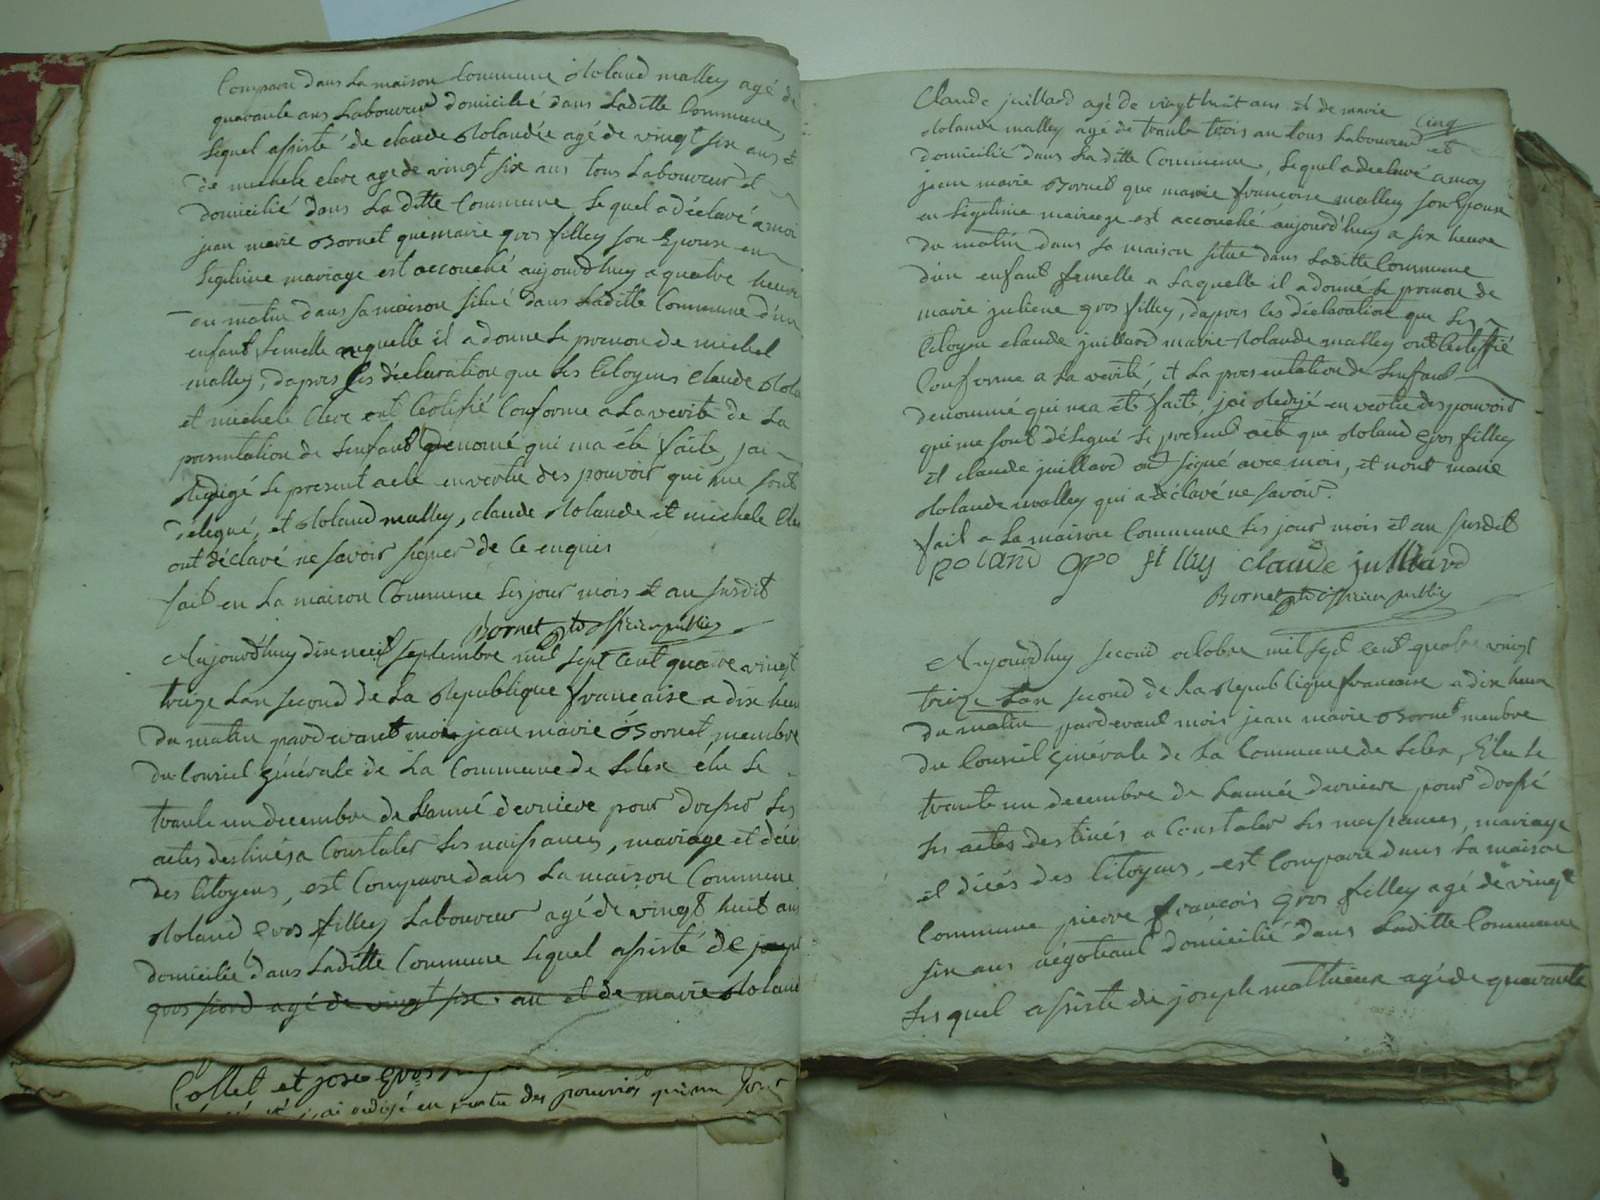 Comparu dans La maison Commune Roland malley agé de
quarante ans Laboureur domicilié dans Laditte Commune,
Lequel assisté de claude Rolande agé de vingt six ans et
de michele clere age de vingt six ans tous Laboureur et
domicilié dans La ditte Commune Lequel a déclavé a moi
jean marie Bornet que marie gros filley son Epouse en
Legitime mariage est accouché aujourd'huy a quatre heure
du matin dans sa maison situé dans Laditte Commune d'un
enfant femelle auquelle il a donne Le prenom de michel
malley, dapres Les déclaration que Les Citoyens Claude Rola
et michele Clere ont Certifié Conforme a La verite de La
presentation de Lenfant denomé qui ma été faite, jai
Redigé Le present acte en vertu des pouvoir qui me sont
delegué, et Roland malley, claude Rolande et michele Cler
ont déclavé ne savoir signer de Ce enquis
fait en La maison Commune Les jour mois et an susdit
Bornet officier public
Aujourd'huy dix neuf septembre mil sept Cent quatre vingt
treize Lan second de La Republique francaise a dix heure
du matin pardevant moi jean marie Bornet membre
du Conseil générale de La Commune de élu Le
trante un decembre de Lanné derniere pour dresser Les
actes destinés a Constater Les naissances, mariage et déces
des Citoyens, est Comparu dans La maison Commune
Roland gros filley Laboureur agé de vingt huit ans
domicilié dans Laditte Commune Lequel assisté de
agé de vingt six an et de marie Roland
Collet et gros
jai redigé en vertu des pouvoirs qui me sont
Claude juillard agé de vingt huit ans et de marie
Cinq
Rolande malley agé de trante trois an tous Laboureur et
domicilié dans La ditte Commune, Lequel a déclavé a moy
jean marie Bornet que marie francoise malley son Epouse
en Legitime mairage est accouché aujourd'huy a six heure
du matin dans sa maison situe dans Laditte Commune
d'un enfant femelle a Laquelle il a donne Le prenon de
marie juliene gros filley, dapres Les déclaration que Les
Citoyen claude juillard marie Rolande malley ont Certifié
Conforme a La verité, et La presentation de Lenfant
denommé qui ma été faite, jai Redijé en vertue des pouvoir
qui me sont délegué Le present acte que Roland gros filley
et claude juillard ont signé avec mois, et nont marie
Rolande malley qui a déclavé ne savoir.
fait a La maison Commune Les jour mois et an susdit
Roland gro filley claude juilliard
Bornet officier public
Aujourd'huy second octobre mil sept cent quatre vingt
treize Lan second de La Republique francaise a dix heure
du matin pardevant mois jean marie Bornet menbre
du Conseil générale de La Commune de Elu Le
trante un decembre de Lannée derniere pour dressé
Les actes destinés a Constater Les naissances, mariage
et dicés des Citoyens, est Comparu dans La maison
Commune pierre francois gros filley agé de vingt
six ans négotiant domicilié dans Laditte Commune
Les quel assiste de joseph mathieux agé de quarante